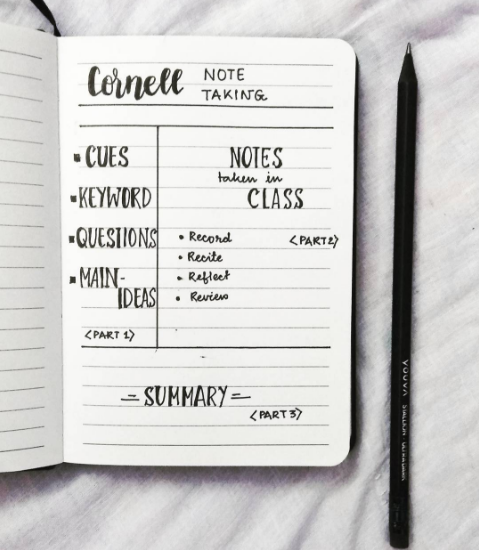 Cornell NOTE
TAKING
▪ CUES
▪ KEYWORD
▪ QUESTIONS
▪ MAIN-
IDEAS
<PART 1>
NOTES
taken in
CLASS
<PART2>
• Record
• Recite
• Reflect
• Review
= SUMMARY =
<PART 3>